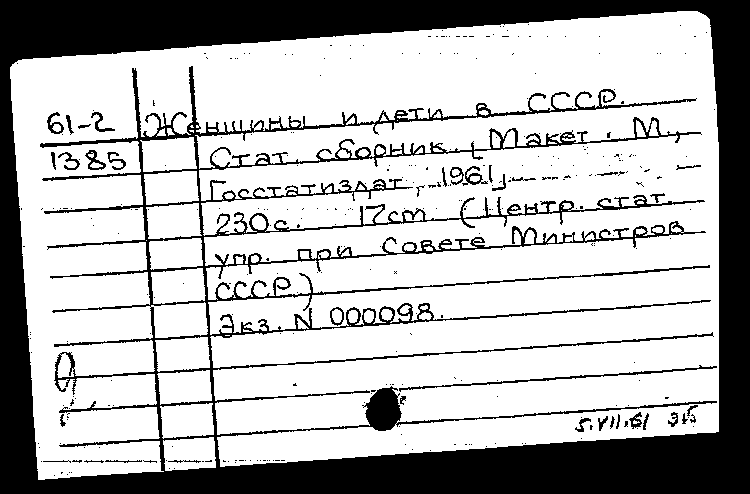 61-2 Женщины и дети в СССР.
1385 Стат. сборник. [Макет. М.,
Госстатиздат, 1961].
230с. 17cm (Центр. стат.
упр. при Совете Министров
СССР)
Экз. N 000098.
5.VII.61